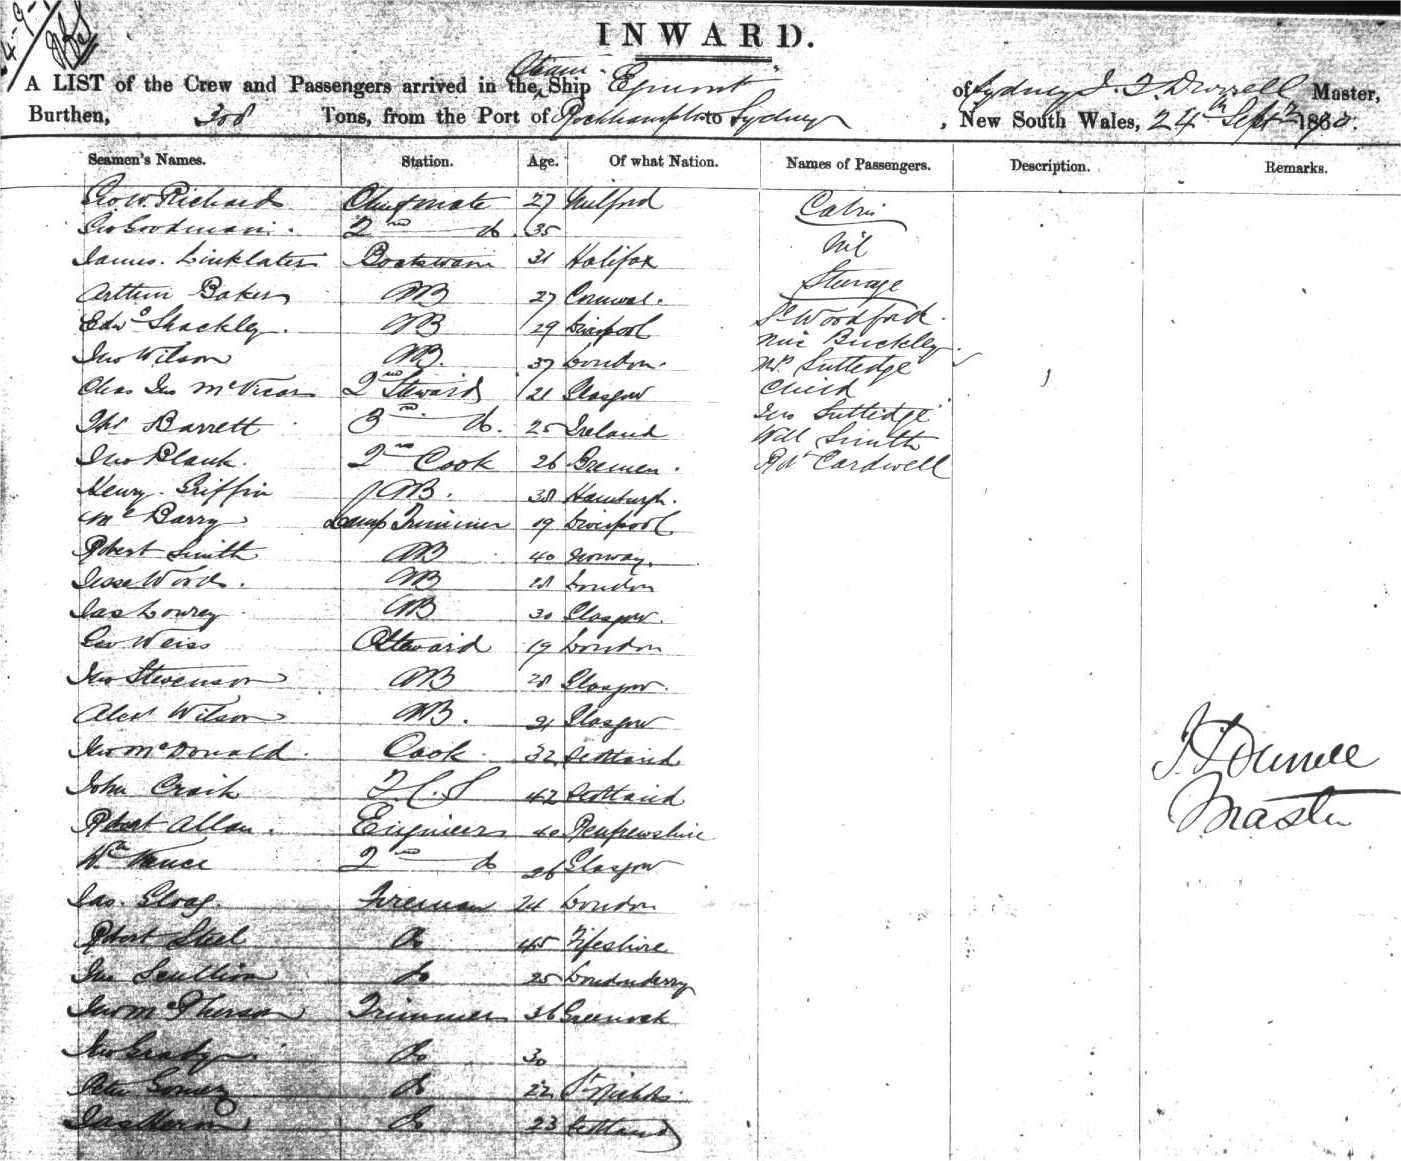 24-9-
INWARD.
A LIST of the Crew and Passengers arrived in the Steam Ship "Egmont" of Sydney J. T. Durrell Master,
Burthen, 308 Tons, from the Port of Rockhampton to Sydney, New South Wales, 24th Sept 1870.
Seamen's Names. Station. Age. Of what Nation. Names of Passengers. Description. Remarks.
Geo W. Richards Chief Mate 27 Milford
Geo Goodman. 2nd do. 35
James. Linklater Boatswain 31 Halifax
Arthur Baker AB 27 Cornwal.
Edwd Shackley. AB 29 Liverpool
Jno Wilson AB. 37 London.
Chas Jno McVicar 2nd Steward 21 Glasgow
Ths Barrett 3rd. do. 25 Ireland
Jno Blank. 2nd Cook 26 Bremen.
Henry. Griffin AB. 38 Hamburgh.
Barry Lamp Trimmer 19 Liverpool
Robert Smith AB 40 Norway.
Jesse Woods. AB 28 London
Jas Lowrey AB 30 Glasgow.
Geo Weiss Steward 19 London
Jno Stevenson AB 28 Glasgow.
Alexr Wilson AB. 21 Glasgow
Jno McDonald. Cook 32 Scotland
John Craik 42 Scotland
Robert Allan. Engineer 40 Renfrewshire
Wm Vance 2nd do 26 Glasgow
Jas. Gloag. Fireman 24 London
Robert Steel Do 45 Fifeshire
Jno Scullion do 25 Londonderry
Jno McPherson Trimmer 36 Greenock
Jno Grady. Do 30
Peter Gomez do 22 St Nichols
Jas Heron Do 23 Scotland
Cabin
Nil
Steerage
Woodford.
Buckley.
Suttedge
Child
Jno Suttidge
Will Smith
Rdt Cardwell
J. T. Durrell
Master